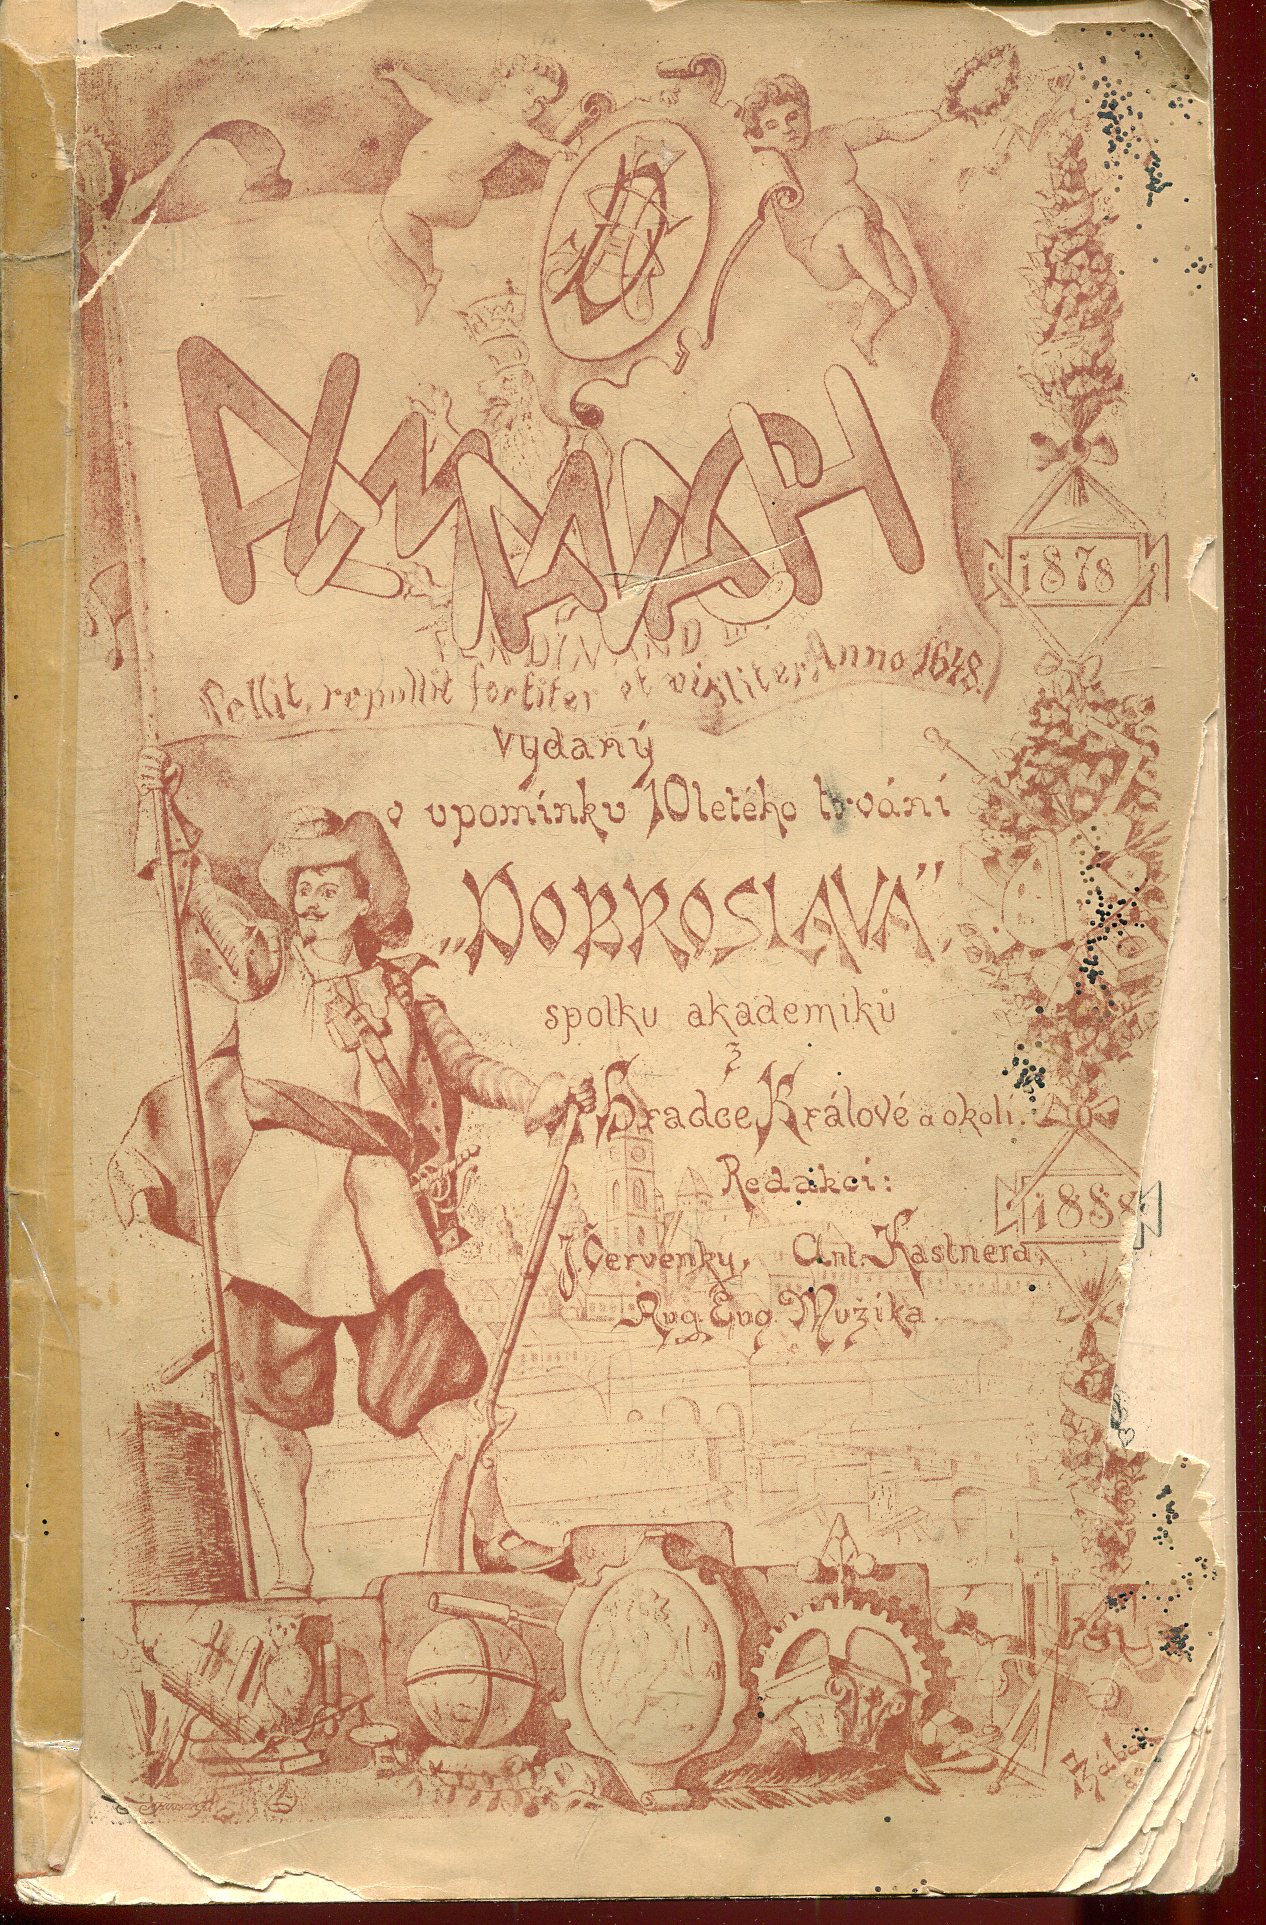 ALMANACH
1878
FERDINAND III
Pellit, repullit fortiter et viriliter Anno 1648.
Vydaný
v upomínku 10letého trvání
„DOBROSLAVA”,
spolku akademiků
z
Hradce Králové a okolí.
Redakcí:
1888
J. Červenky, Ant. Kastnera,
Aug. Eug. Mužíka.